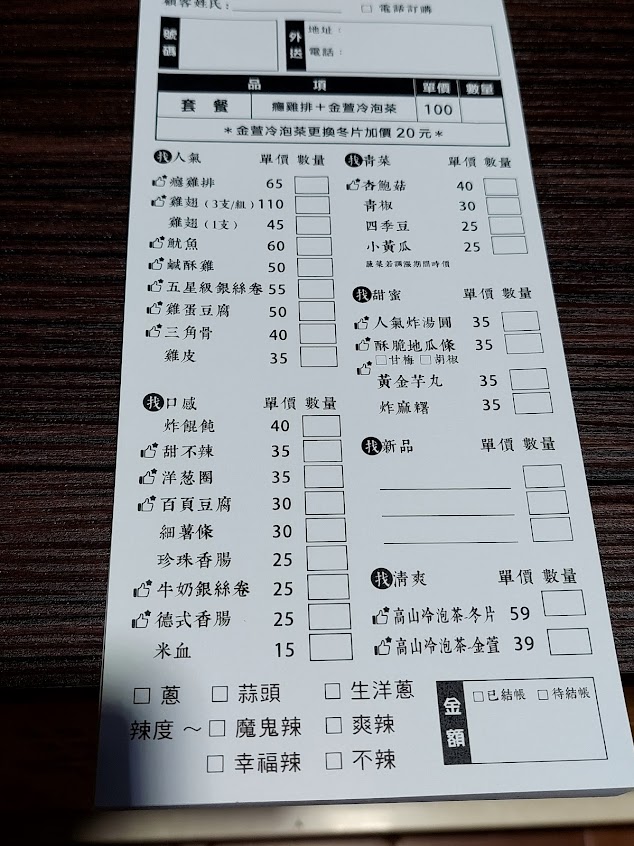 顧客姓氏： □ 電話訂購
號碼
外送
地址：
電話：
品 項 單價 數量
套餐 癮雞排＋金萱冷泡茶 100
＊金萱冷泡茶更換冬片加價20元＊
找人氣 單價 數量
癮雞排 65
雞翅（3支/組） 110
雞翅（1支） 45
魷魚 60
鹹酥雞 50
五星級銀絲卷 55
雞蛋豆腐 50
三角骨 40
雞皮 35
找口感 單價 數量
炸餛飩 40
甜不辣 35
洋葱圈 35
百頁豆腐 30
細薯條 30
珍珠香腸 25
牛奶銀絲卷 25
德式香腸 25
米血 15
找青菜 單價 數量
杏鮑菇 40
青椒 30
四季豆 25
小黃瓜 25
蔬菜若調漲期間時價
找甜蜜 單價 數量
人氣炸湯圓 35
酥脆地瓜條 35
□甘梅 □胡椒
黃金芋丸 35
炸麻糬 35
找新品 單價 數量
找清爽 單價 數量
高山冷泡茶-冬片 59
高山冷泡茶-金萱 39
□ 蔥 □ 蒜頭 □ 生洋蔥
辣度～□ 魔鬼辣 □ 爽辣
□ 幸福辣 □ 不辣
金額
□已結帳 □待結帳